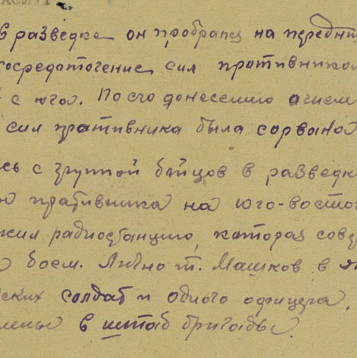 в разведке он пробрался на передний
сосредоточение сил противником
с юга. По его донесению огнем
сил противника была сорвана
сь с группой бойцов в разведк
противника на юго-восто
жил радиостанцию, которая
боем. Лично т. Машков в
ских солдат и одного офицера.
лены в штаб бригады.